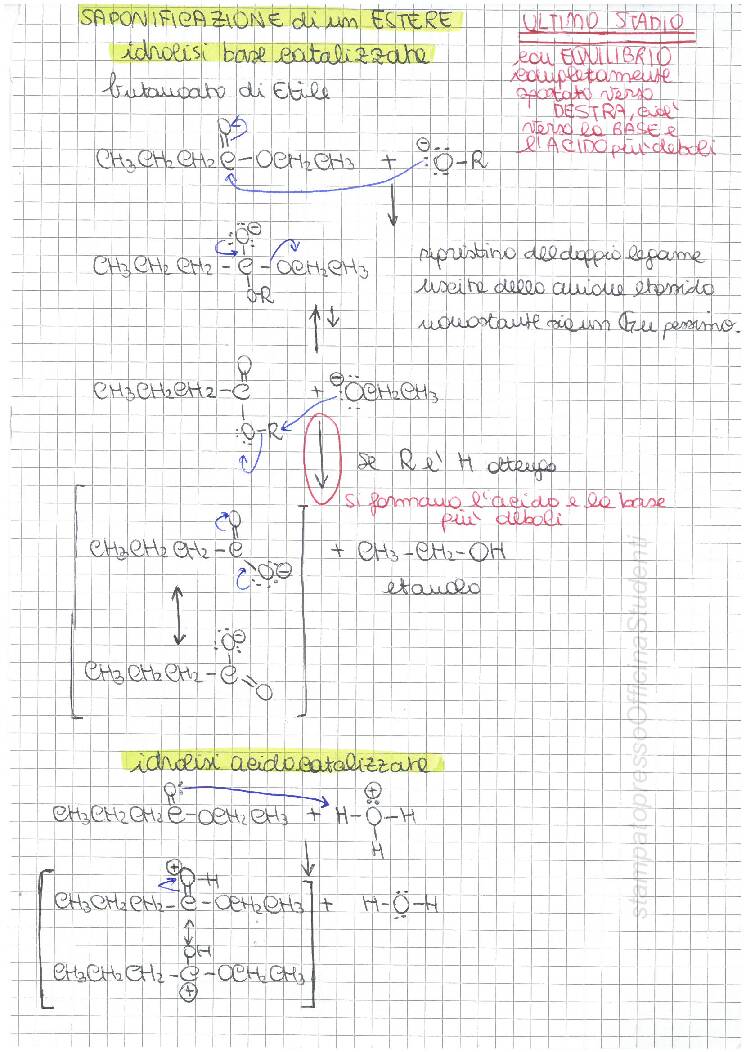 SAPONIFICAZIONE di un ESTERE
idrolisi base catalizzata
butanoato di Etile
ULTIMO STADIO
con EQUILIBRIO
completamente
spostato verso
DESTRA, cioè
verso la BASE e
l'ACIDO più deboli
O
CH3CH2CH2C-OCH2CH3 + ⊖O-R
O⊖
CH3CH2CH2-C-OCH2CH3
O-R
ripristino del doppio legame
uscita dello anione etossido
nonostante sia un GU pessimo.
O
CH3CH2CH2-C + ⊖OCH2CH3
O-R
se R è H ottengo
si formano l'acido e la base
più deboli
O
CH3CH2CH2-C + CH3-CH2-OH
O⊖
etanolo
O⊖
CH3CH2CH2-C
O
idrolisi acido catalizzata
O ⊕
CH3CH2CH2C-OCH2CH3 + H-O-H
H
⊕
O-H
CH3CH2CH2-C-OCH2CH3 + H-O-H
OH
CH3CH2CH2-C-OCH2CH3
⊕
stampatopressoOfficinaStudenti